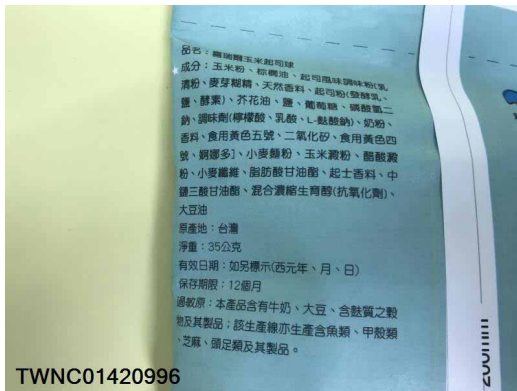 品名：喜瑞爾玉米起司球
成分：玉米粉、棕櫚油、起司風味調味粉[乳
清粉、麥芽糊精、天然香料、起司粉(發酵乳、
鹽、酵素)、芥花油、鹽、葡萄糖、磷酸氫二
鈉、調味劑(檸檬酸、乳酸、L-麩酸鈉)、奶粉、
香料、食用黃色五號、二氧化矽、食用黃色四
號、婀娜多]、小麥麵粉、玉米澱粉、醋酸澱
粉、小麥纖維、脂肪酸甘油酯、起士香料、中
鏈三酸甘油酯、混合濃縮生育醇(抗氧化劑)、
大豆油
原產地：台灣
淨重：35公克
有效日期：如另標示(西元年、月、日)
保存期限：12個月
過敏原：本產品含有牛奶、大豆、含麩質之穀
物及其製品；該生產線亦生產含魚類、甲殼類
、芝麻、頭足類及其製品。
200mm
TWNC01420996